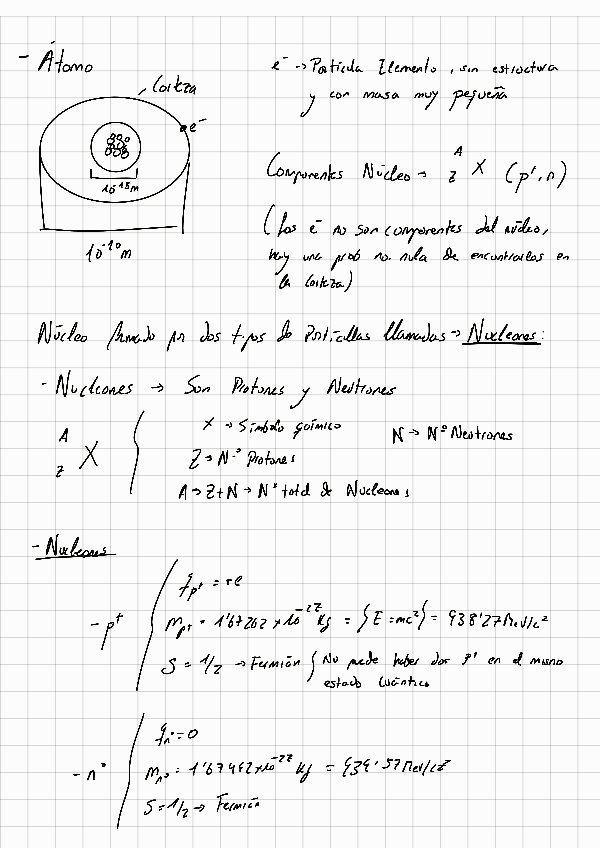 - Átomo
Corteza
e⁻
10⁻¹⁵m
10⁻¹⁰m
e⁻ → Partícula Elemento, sin estructura
y con masa muy pequeña
Componentes Núcleo → ᴬ_Z X (p⁺, n)
(Los e⁻ no son componentes del núcleo,
hay una prob no nula de encontrarlos en
la corteza)
Núcleo formado por dos tipos de Partículas llamadas → Nucleones:
- Nucleones → Son Protones y Neutrones
ᴬ_Z X
X → Símbolo químico
N → Nº Neutrones
Z → Nº Protones
A → Z+N → Nº total de Nucleones
- Nucleones
- p⁺
q_p⁺ = +e
m_p⁺ = 1'67262 x 10⁻²⁷ Kg = {E = mc²} = 938'27 MeV/c²
S = 1/2 → Fermión { No puede haber dos p⁺ en el mismo
estado cuántico
- n⁰
q_n⁰ = 0
m_n⁰ = 1'67492 x 10⁻²⁷ Kg = 939'57 MeV/c²
S = 1/2 → Fermión